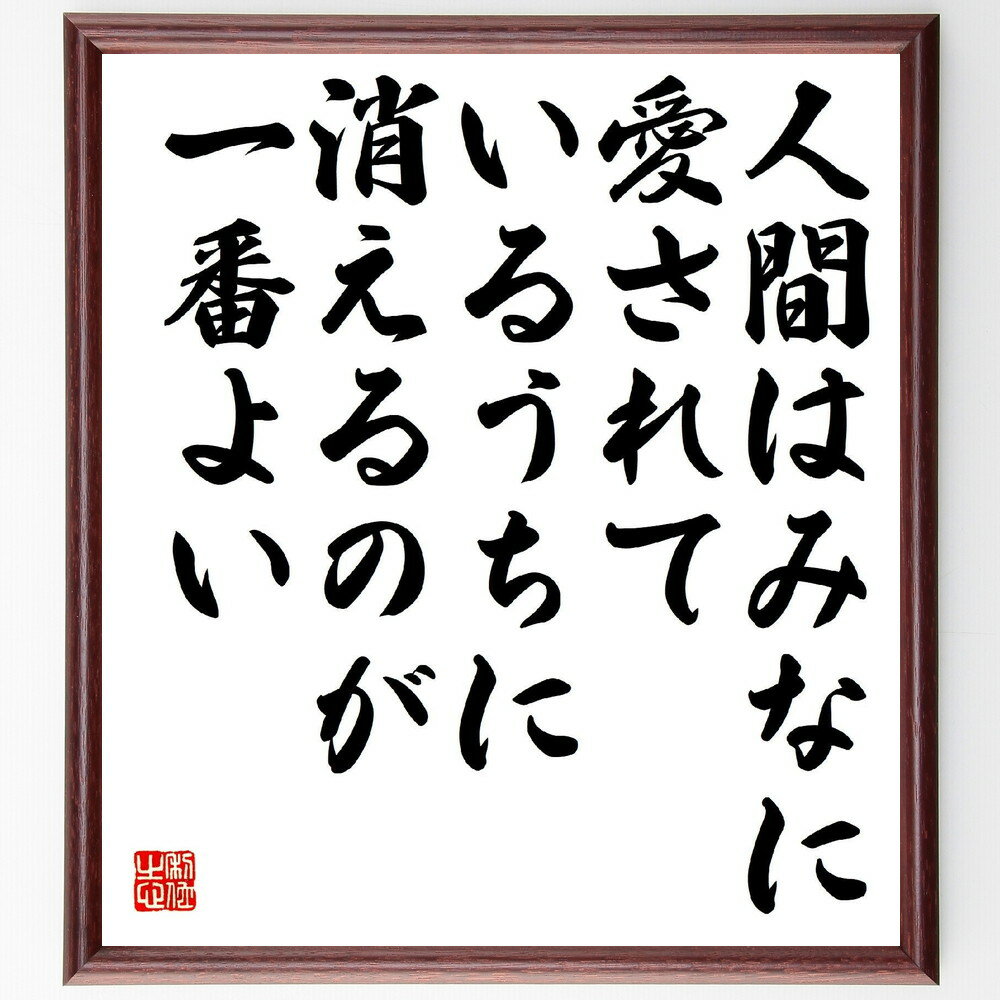 人間はみなに
愛されて
いるうちに
消えるのが
一番よい